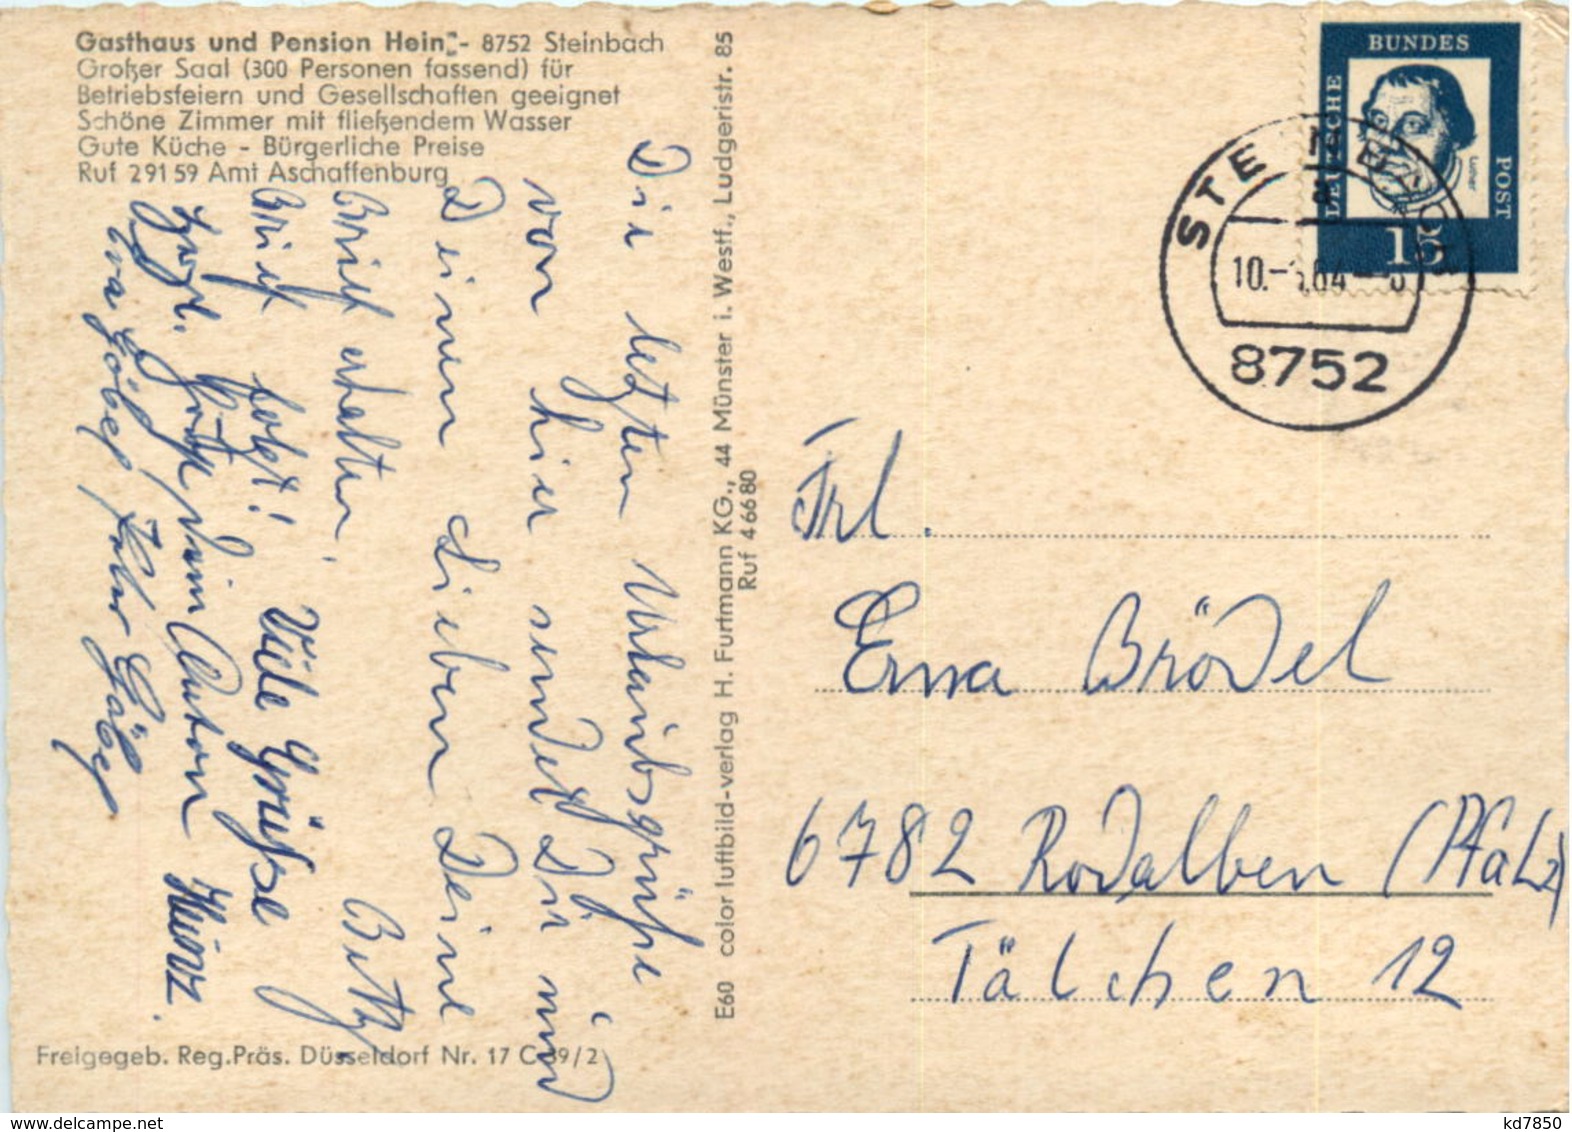 Gasthaus und Pension Hein - 8752 Steinbach
Großer Saal (300 Personen fassend) für
Betriebsfeiern und Gesellschaften geeignet
Schöne Zimmer mit fließendem Wasser
Gute Küche - Bürgerliche Preise
Ruf 29159 Amt Aschaffenburg
Die letzten Urlaubsgrüße
von hier sendet Dir nun
Deinen lieben Deine
Brief erhalten,
Brief folgt! Viele Grüsse Betty.
Anton Heinz.
Göbel, Göbel
Freigegeb. Reg.Präs. Düsseldorf Nr. 17 C 39/2
E60 color luftbild-verlag H. Furtmann KG., 44 Münster i. Westf., Ludgeristr. 85
Ruf 46680
DEUTSCHE
BUNDES
POST
Luther
15
8752
Frl.
Erna Brödel
6782 Rodalben (Pfalz)
Tälchen 12
delcampe.net
kd7850